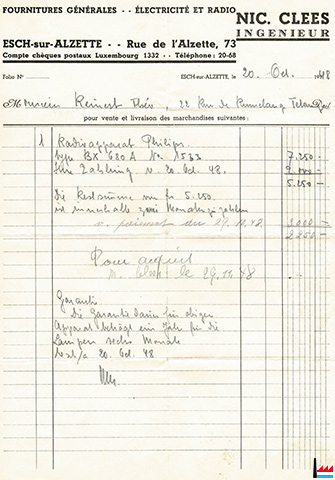 FOURNITURES GÉNÉRALES - - ÉLECTRICITÉ ET RADIO
NIC. CLEES
INGENIEUR
ESCH-sur-ALZETTE - - Rue de l'Alzette, 73
Compte chèques postaux Luxembourg 1332 - - Téléphone: 20-68
Folio No
ESCH-sur-ALZETTE, le 20. Oct. 1948
Monsieur Reinert Théo, 22 Rue de Rumelange
pour vente et livraison des marchandises suivantes:
1 Radioapparat Philips
type BX 680 A No 1533 7.250 -
Ihre Zahlung v. 20 Oct 48. 2.000 -
5.250 -
Die Restsumme von fr 5.250
ist innerhalb zwei Monate zu zahlen
v. paiement du 29.10.48 3000 -
2250 -
Pour acquit
le 29.10.48
Garantie
Die Garantie dauer für obiger
Apparat beträgt ein Jahr für die
Lampen sechs Monate
Esch/a 20. Oct. 48